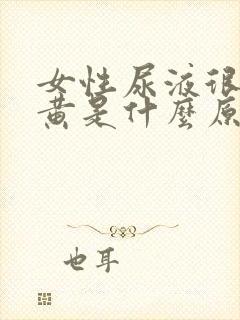 女性尿液很
黄是什麼原
也耳